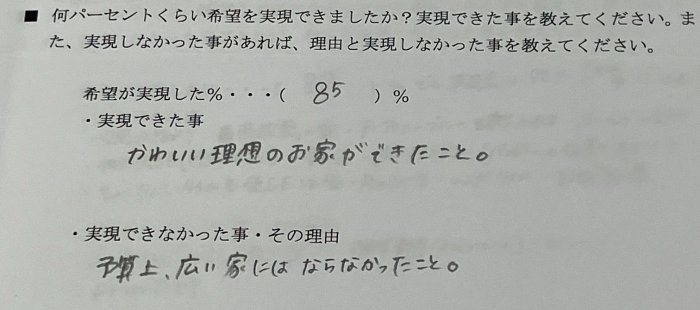 ■ 何パーセントくらい希望を実現できましたか？実現できた事を教えてください。ま
た、実現しなかった事があれば、理由と実現しなかった事を教えてください。
希望が実現した％・・・( 85 ) ％
・実現できた事
かわいい理想のお家ができたこと。
・実現できなかった事・その理由
予算上、広い家にはならなかったこと。